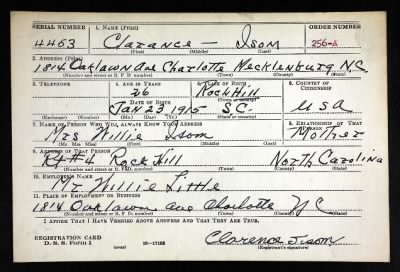 SERIAL NUMBER 1. NAME (Print) ORDER NUMBER
4463 Clarance — Isom 256-A
(First) (Middle) (Last)
2. ADDRESS (Print)
1814 Oaklawn Ave Charlotte Mecklenburg N.C.
(Number and street or R. F. D. number) (Town) (County) (State)
3. TELEPHONE 4. AGE IN YEARS 5. PLACE OF BIRTH 6. COUNTRY OF CITIZENSHIP
26 Rock Hill
DATE OF BIRTH (Town or county)
Jan 23 1915 S.C. USA
(Exchange) (No.) (Mo.) (Day) (Yr.) (State or country)
7. NAME OF PERSON WHO WILL ALWAYS KNOW YOUR ADDRESS 8. RELATIONSHIP OF THAT PERSON
Mrs Willie Isom Mother
(Mr. Mrs. Miss) (First) (Middle) (Last)
9. ADDRESS OF THAT PERSON
Rt #4 Rock Hill North Carolina
(Number and street or R. F. D. number) (Town) (County) (State)
10. EMPLOYER'S NAME
Mr Willie Little
11. PLACE OF EMPLOYMENT OR BUSINESS
1814 Oaklawn Ave Charlotte NC
(Number and street or R. F. D. number) (Town) (County) (State)
I AFFIRM THAT I HAVE VERIFIED ABOVE ANSWERS AND THAT THEY ARE TRUE.
REGISTRATION CARD
D. S. S. Form 1 16—17105 Clarence Isom
(Registrant's signature)